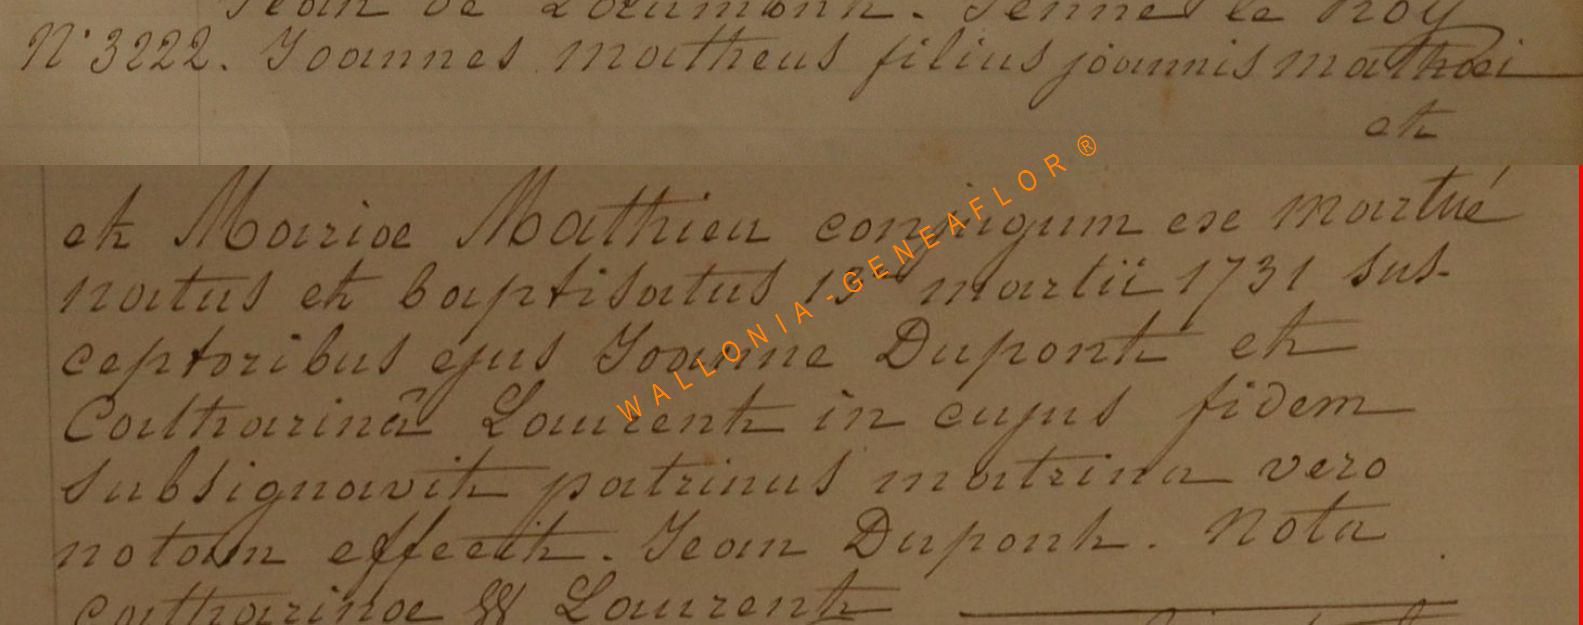 Jean de Loeumonh. Jenne le Roy
N° 3222. Joannes matheus filius joannis mathoei
et
et Marioe Mathieu conjugum ex martué
natus et baptisatus 13ª martii 1731 sus-
ceptoribus ejus Joanne Dupont et
Catharinâ Laurent in cujus fidem
subsignavit patrinus matrina vero
notam effecit. Jean Dupont. Nota
catharinoe §§ Laurent
WALLONIA-GENEAFLOR®